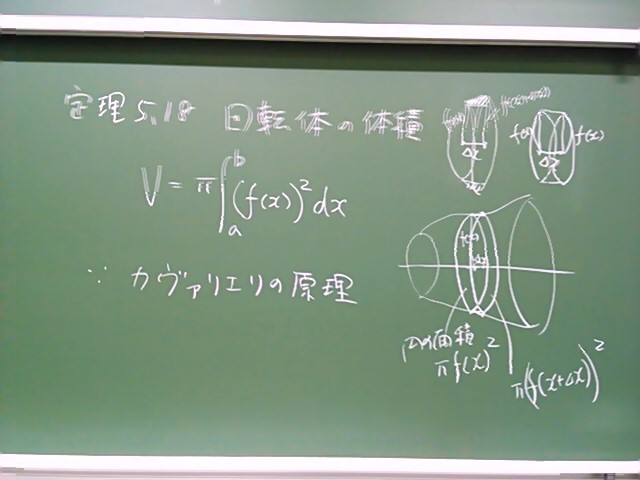 定理5.18 回転体の体積
V = π∫_a^b (f(x))² dx
∵ カヴァリエリの原理
f(x) f(x)
Δx Δx
f(x)
Δx
円の面積
πf(x)²
π(f(x+Δx))²